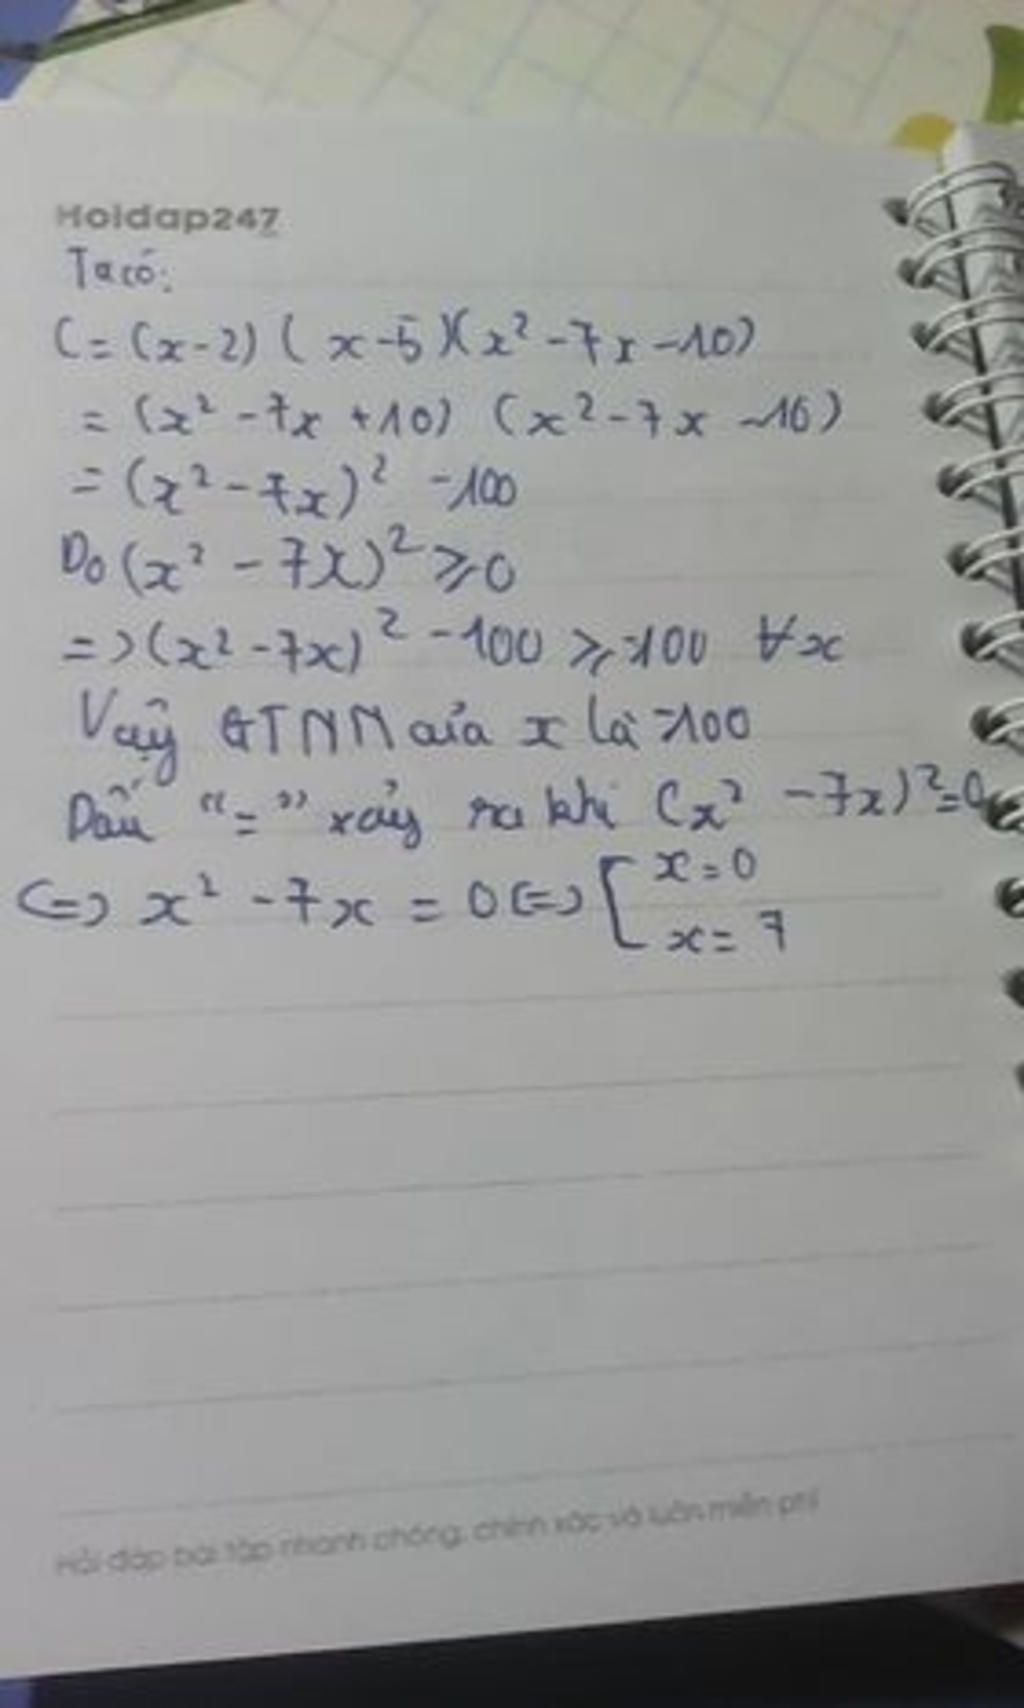 Hoidap247
Ta có:
C = (x-2) ( x-5)(x² -7x -10)
= (x² -7x +10) (x² -7x -10)
= (x² -7x)² -100
Do (x² -7x)² ⩾ 0
=> (x² -7x)² -100 ⩾ -100 ∀x
Vậy GTNN của x là -100
Dấu "=" xảy ra khi (x² -7x)² = 0
<=> x² -7x = 0 <=> [ x = 0
x = 7
Hỏi đáp bài tập nhanh chóng, chính xác và luôn miễn phí